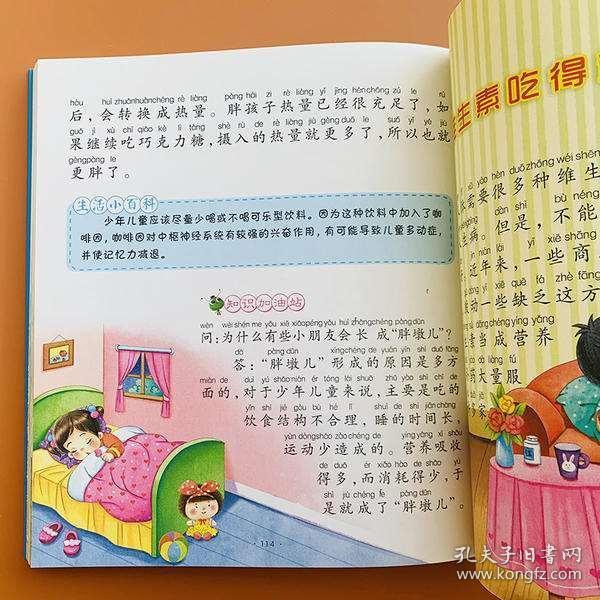 hòu huì zhuǎnhuànchéng rè liàng pàng hái zi rè liàng yǐ jīng hěnchōng zú le rú
后，会转换成热量。胖孩子热量已经很充足了，如
guǒ jì xù chī qiǎo kè lì táng shè rù de rè liàng jiù gèng duō le suǒ yǐ yě jiù
果继续吃巧克力糖，摄入的热量就更多了，所以也就
gèngpàng le
更胖了。
生活小百科
少年儿童应该尽量少喝或不喝可乐型饮料。因为这种饮料中加入了咖
啡因，咖啡因对中枢神经系统有较强的兴奋作用，有可能导致儿童多动症，
并使记忆力减退。
知识加油站
wèn wèi shén me yǒu xiē xiǎopéngyǒu huì zhǎngchéng pàngdūn
问：为什么有些小朋友会长成“胖墩儿”？
dá pàng dūn xíngchéng de yuán yīn shì duō fāng
答：“胖墩儿”形成的原因是多方
miàn de duì yú shàonián ér tóng lái shuō zhǔ yào shì chī de
面的，对于少年儿童来说，主要是吃的
yǐn shí jié gòu bù hé lǐ shuì de shí jiāncháng
饮食结构不合理，睡的时间长，
yùn dòngshǎo zào chéng de yíngyǎng xī shōu
运动少造成的。营养吸收
dé duō ér xiāo hào de shǎo yú
得多，而消耗得少，于
shì jiù chéng le pàng dūn
是就成了“胖墩儿”。
114
生素吃得
yào hěn duōzhǒng wéi shēn
需要很多种维生
dàn shì bù néng
病。但是，不能
nián lái yì xiē shāng
近年来，一些商
quē fá zhè fāng
一些缺乏这方
dàngchéngyíng yǎng
当成营养
dà liàng fú
药大量服
孔夫子旧书网
www.kongfz.com